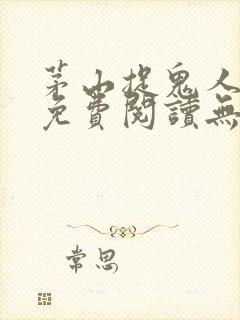 茅山捉鬼人
免費閱讀無
常思